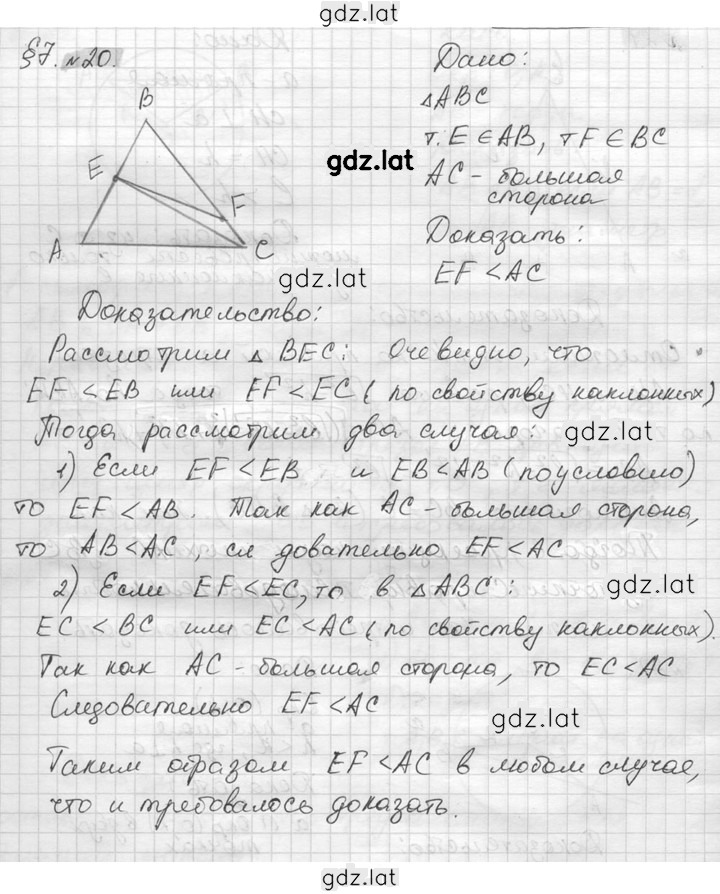 gdz.lat
§7. №20.
B
E
F
A
C
Дано:
△ABC
т. E ∈ AB, т F ∈ BC
AC - большая
сторона
Доказать:
EF < AC
gdz.lat
gdz.lat
Доказательство:
Рассмотрим △ BEC: Очевидно, что
EF < EB или EF < EC ( по свойству наклонных)
Тогда рассмотрим два случая:
gdz.lat
1) Если EF < EB и EB < AB (по условию)
то EF < AB. Так как AC - большая сторона,
то AB < AC, сл довательно EF < AC
2) Если EF < EC, то в △ABC:
gdz.lat
EC < BC или EC < AC ( по свойству наклонных).
Так как AC - большая сторона, то EC < AC
Следовательно EF < AC
gdz.lat
Таким образом EF < AC в любом случае,
что и требовалось доказать.
gdz.lat